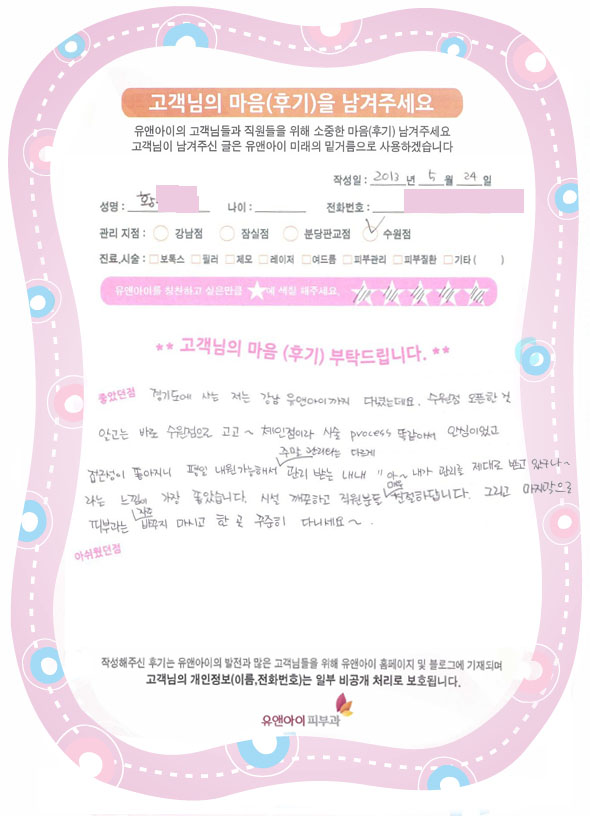 고객님의 마음(후기)을 남겨주세요
유앤아이의 고객님들과 직원들을 위해 소중한 마음(후기) 남겨주세요
고객님이 남겨주신 글은 유앤아이 미래의 밑거름으로 사용하겠습니다
작성일 : 2013 년 5 월 24 일
성명 : 황 나이 : 전화번호 :
관리 지점 : 강남점 잠실점 분당판교점 수원점
진료,시술 : 보톡스 필러 제모 레이저 여드름 피부관리 피부질환 기타 ( )
유앤아이를 칭찬하고 싶은만큼 ★에 색칠 해주세요.
** 고객님의 마음 (후기) 부탁드립니다. **
좋았던점 경기도에 사는 저는 강남 유앤아이까지 다녔는데요. 수원점 오픈한 것
안고는 바로 수원점으로 고고~ 체인점이라 시술 process 똑같아서 안심이었고
주말 관리와는 다르게
접근성이 좋아지니 평일 내원가능해서 관리 받는 내내 "아~ 내가 관리를 제대로 받고 있구나~
라는 느낌에 가장 좋았습니다. 시설 깨끗하고 직원분들 매우 친절하답니다. 그리고 마지막으로
피부과는 자주 바꾸지 마시고 한 곳 꾸준히 다니세요~.
아쉬웠던점
작성해주신 후기는 유앤아이의 발전과 많은 고객님들을 위해 유앤아이 홈페이지 및 블로그에 기재되며
고객님의 개인정보(이름,전화번호)는 일부 비공개 처리로 보호됩니다.
유앤아이피부과